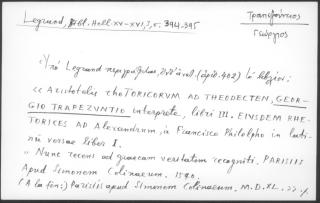 Legrand, Bibl. Hell. XV-XVI, 3, σ. 394-395
Τραπεζούντιος
Γεώργιος
Ὑπὸ Legrand περιγράφεται (ἀριθ. 402) ἡ ἔκδοσις:
« Aristotelis rheTORICORUM AD THEODECTEN, GEOR-
GIO TRAPEZUNTIO interprete, libri III. EIUSDEM RHE-
TORICES AD Alexandrum, a Francisco Philelpho in lati-
num versae liber I.
» Nunc recens ad graecam veritatem recogniti. PARISIIS
Apud Simonem Colinaeum. 1540.
(A la fin:) Parisiis apud Simonem Colinaeum. M.D.XL. »